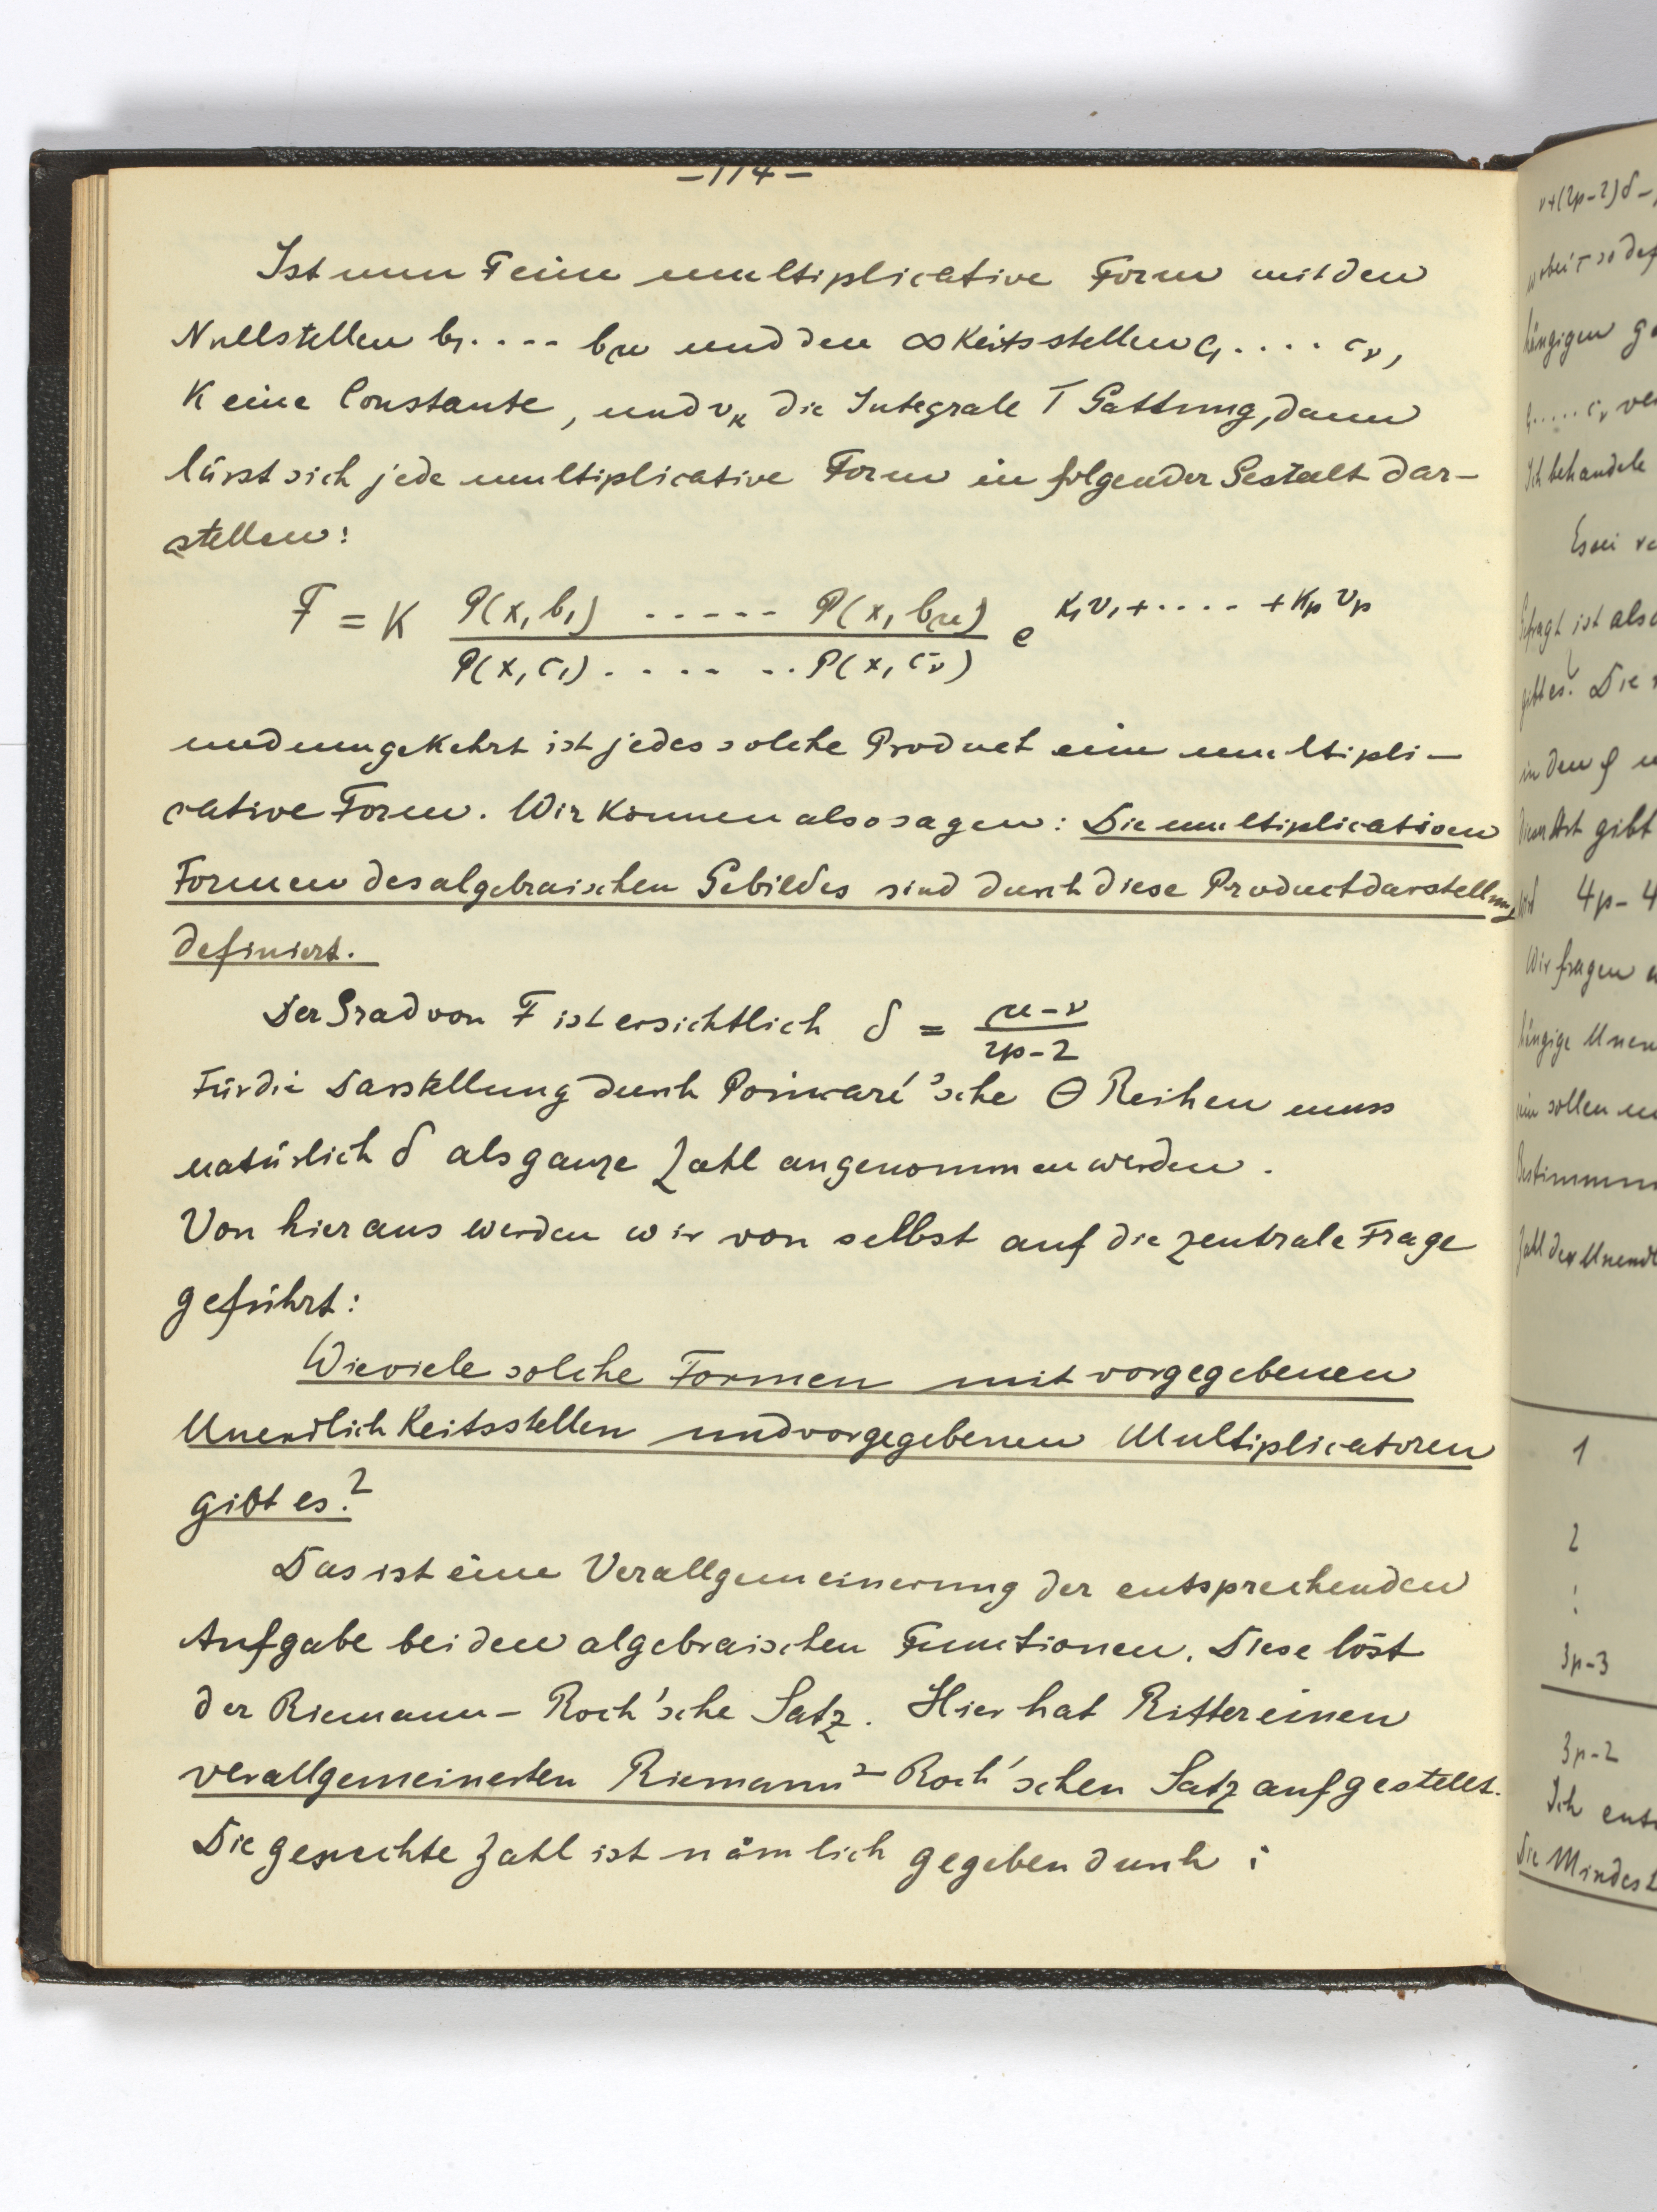 –114–
Ist nun F eine multiplicative Form mit den
Nullstellen b₁.... bμ und den ∞keitsstellen c₁.... cν,
K eine Constante, und vκ die Integrale I Gattung, dann
lässt sich jede multiplicative Form in folgender Gestalt dar-
stellen:
F = K P(x,b₁) ..... P(x,bμ) / P(x,c₁) ...... P(x,cν) e^{K₁v₁+....+Kpvp}
und umgekehrt ist jedes solche Product eine multipli-
cative Form. Wir können also sagen: Die multiplicativen
Formen des algebraischen Gebildes sind durch diese Productdarstellung
definiert.
Der Grad von F ist ersichtlich δ = μ-ν / 2p-2
Für die Darstellung durch Poincaré'sche Θ Reihen muss
natürlich δ als ganze Zahl angenommen werden.
Von hier aus werden wir von selbst auf die zentrale Frage
geführt:
Wieviele solche Formen mit vorgegebenen
Unendlichkeitsstellen und vorgegebenen Multiplicatoren
gibt es?
Das ist eine Verallgemeinerung der entsprechenden
Aufgabe bei den algebraischen Functionen. Diese löst
der Riemann-Roch'sche Satz. Hier hat Ritter einen
verallgemeinerten Riemann-Roch'schen Satz aufgestellt.
Die gesuchte Zahl ist nämlich gegeben durch:
ν+(2p-2)δ-
hängigen
c₁..... cν
Ich behandle
Es sei
Gefragt ist also
gibt es? Die
in den φ
dieser Art gibt
sind 4p-4
Wir fragen
hängige
sein sollen
Bestimmun
Zahl der Unendl
1
2
:
3p-3
3p-2
Ich
Die Mindest